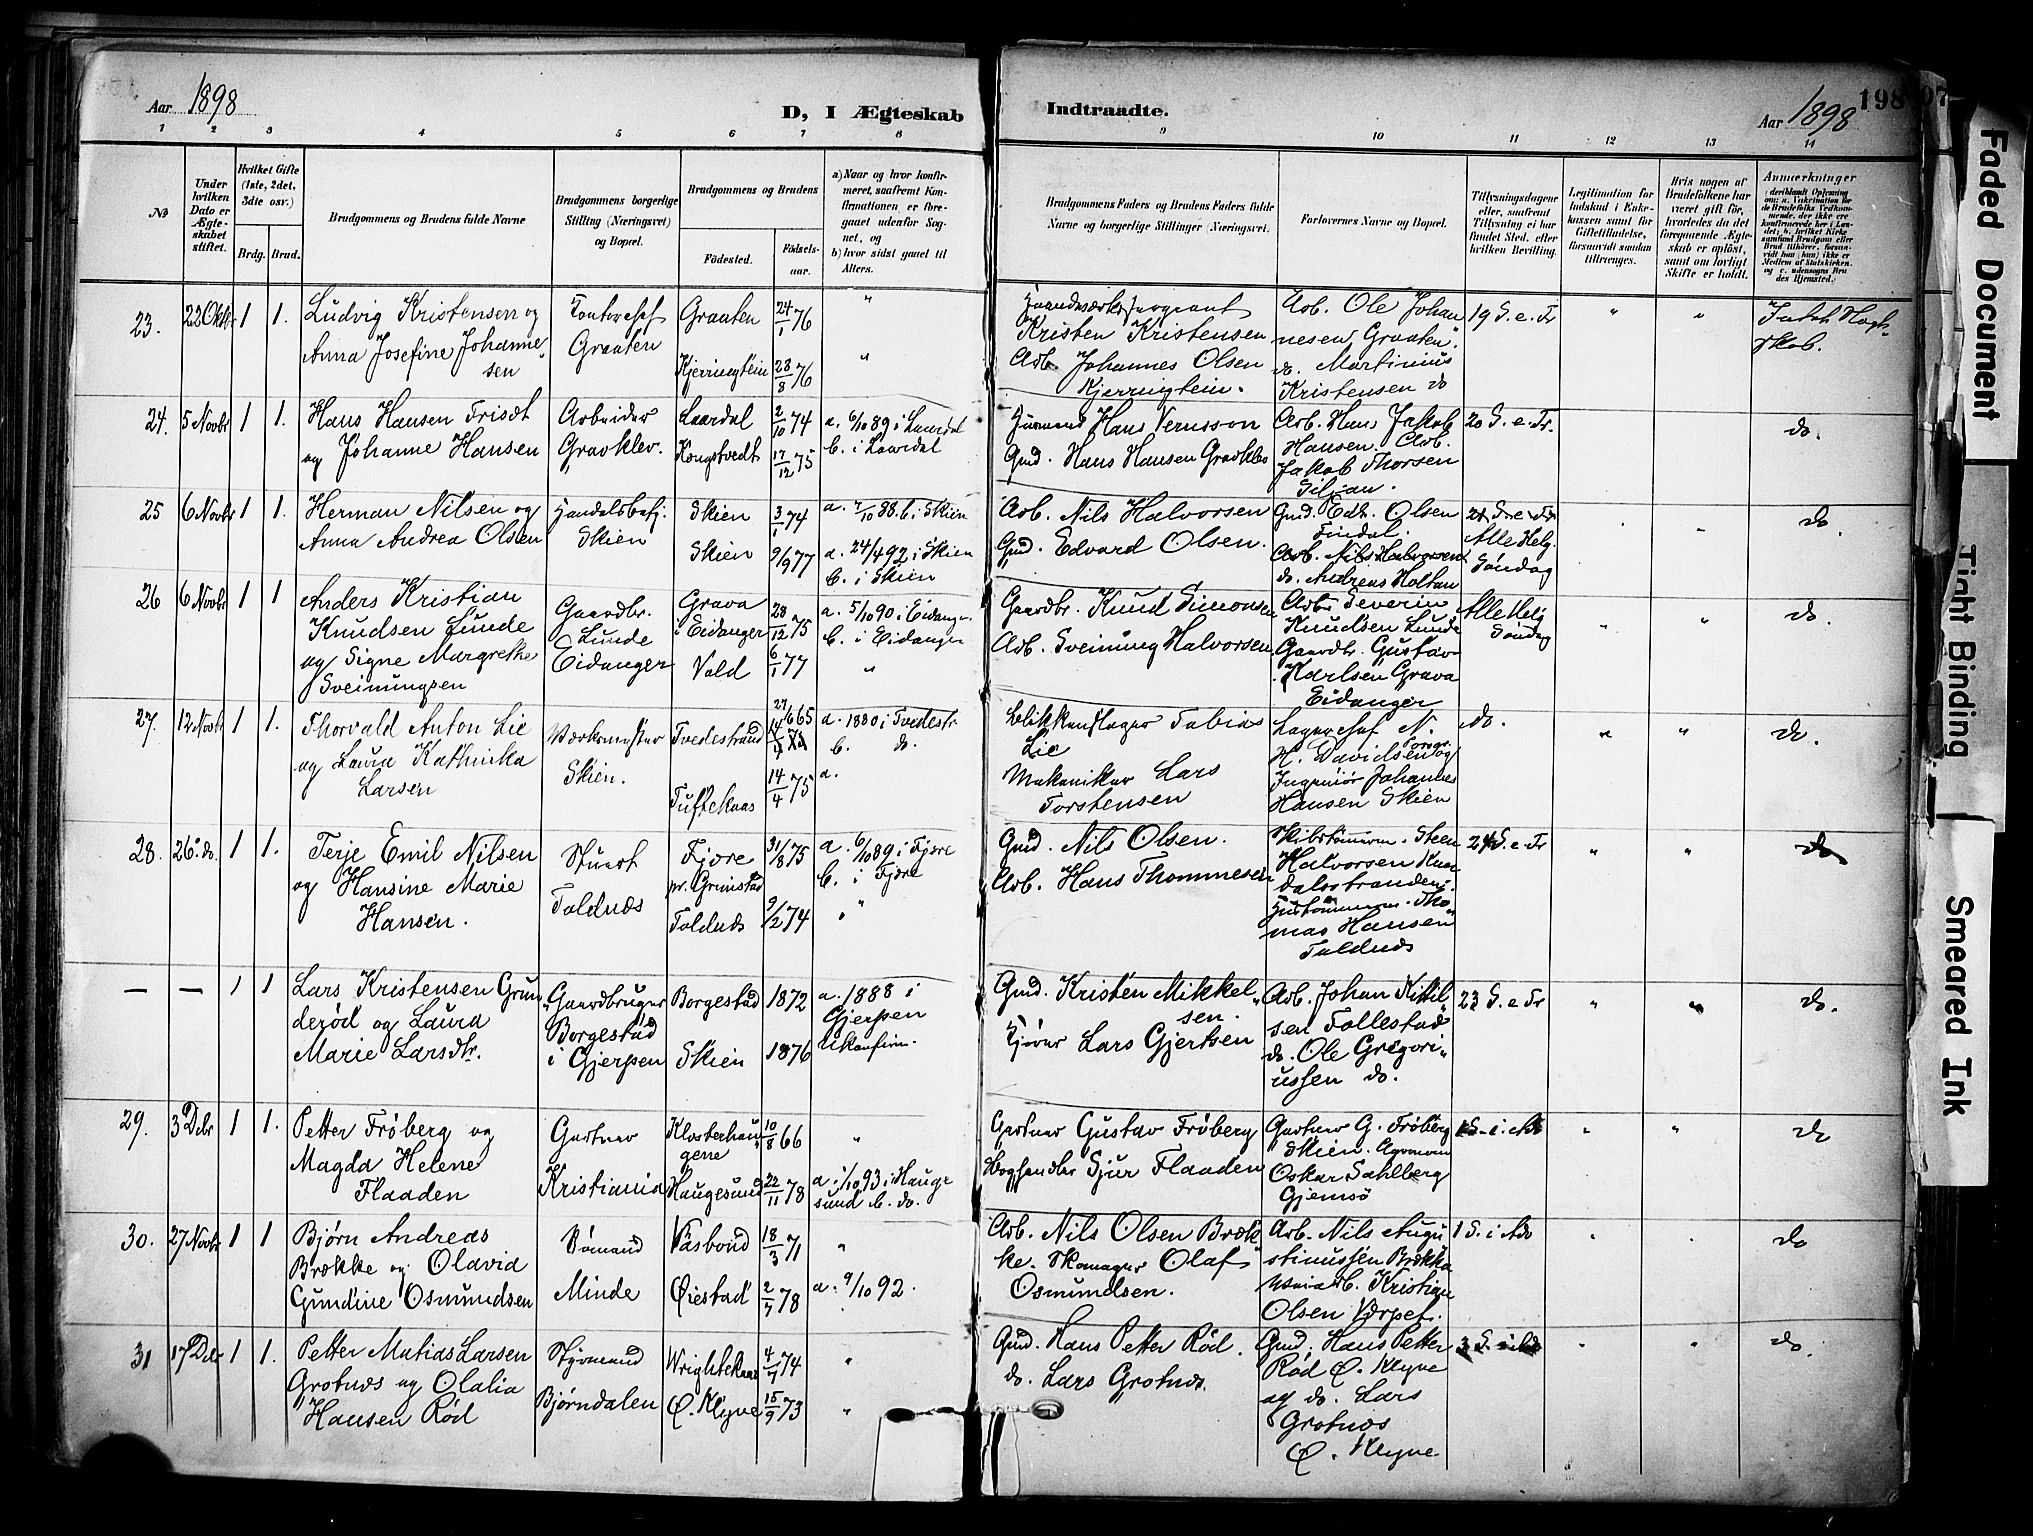 Aar 1898
D, I Ægteskab
Indtraadte.
Aar 1898
198
07
1 2 3 4 5 6 7 8 9 10 11 12 13 14
No
Under hvilken Dato er Ægteskabet stiftet.
Hvilket Gifte (1ste, 2det, 3die osv.)
Brdg. Brud.
Brudgommens og Brudens fulde Navne
Brudgommens borgerlige Stilling (Næringsvei) og Bopæl.
Brudgommens og Brudens
Födested.
Födselsaar.
a) Naar og hvor konfirmeret, saafremt Konfirmationen er foregaaet udenfor Sognet, og
b) hvor sidst gaaet til Alters.
Brudgommens Faders og Brudens Faders fulde Navne og borgerlige Stillinger (Næringsvei.
Forlovernes Navne og Bopæl.
Tillysningsdagene eller, saafremt Tillysning ei har fundet Sted, efter hvilken Bevilling.
Legitimation for Indskud i Enkekassen samt for Giftetilladelse, forsaavidt saadan tiltrænges.
Hvis nogen af Brudefolkene har været gift för, hvorledes da det foregaaende Ægteskab er oplöst, samt om lovligt Skifte er holdt.
Anmærkninger
23. 22 Oktbr 1 1.
Ludvig Kristensen og
Anna Josefine Johanne
sen
Graaten
Graaten 24/1 76 "
Kjerringtein 28/8 76 "
Kristen Kristensen
Arb. Johannes Olsen
Kjerringtein.
Arb. Ole Johan
nesen, Graaten.
do. Martinius
Kristensen do
19 S. e. Tr " "
24. 5 Novbr 1 1.
Hans Hansen Trisæt
og Johanne Hansen
Arbeider
Gravklev.
Laardal 2/10 74 a. 6/10 89 i Laardal
Kongstvedt 17/12 75 b. i Laardal
Husmand Hans Vernsson
Gmd. Hans Hansen Gravklev
Arb. Hans Jakob
Hansen. Arb.
Jakob Thorsen
Siljan.
20 S. e. Tr. do.
25 6 Novbr 1 1.
Herman Nilsen og
Anna Andrea Olsen
Handelsbetj.
Skien
Skien 3/1 74 a. 7/10 88. b. i Skien
Skien 9/9 77 a. 24/4 92 i Skien
b. i Skien
Arb. Nils Halvorsen
Gmd. Edvard Olsen.
Gmd. Edv. Olsen
Findal.
Arb. Nils Halvorsen
do. Andreas Holtan
21 S. e. Tr.
Alle Helg.
Söndag
do
26 6 Novbr 1 1
Anders Kristian
Knudsen Lunde
og Signe Margrethe
Sveinungsen
Gaardbr.
Lunde
Eidanger
Grava
i Eidanger 28/12 75
Vold 6/1 77
a. 5/10 90 i Eidanger
b. i Eidanger
"
Gaardbr. Knud Simonsen
Arb. Sveinung Halvorsen
Arb. Severin
Knudsen Lunde
Gaardbr. Gustav
Karlsen Grava
Eidanger
Alle Helg
Söndag
do.
27. 12 Novbr 1 1.
Thorvald Anton Lie
og Laura Kathinka
Larsen
Værksmester
Skien.
Tvedestrand 27/6 65
Tuftekaas 14/4 75
a. 1880 i Tvedestr.
b. do.
a.
Blikkenslager Tobias
Lie
Mekaniker Lars
Torstensen
Lagerchef N.
H. Davidsen Porsgr. og
Ingeniör Johannes
Hansen Skien
do. " " do.
28. 26. do. 1 1.
Terje Emil Nilsen
og Hansine Marie
Hansen.
Stuert
Foldnæs
Fjære
pr. Grimstad 31/8 75
Foldnæs 9/2 74
a. 6/10 89 i Fjære
b. i Fjære
"
Gmd. Nils Olsen.
Arb. Hans Thommesen
Skibstömrerm. Steen
Halvorsen Knar
dalsstranden.
Hustömrerm. Tho
mas Hansen
Foldnæs
24 S. e Tr " " do
— — 1 1
Lars Kristensen Grun
derød og Laura
Marie Larsdtr.
Gaardbruger
Borgestad
i Gjerpen
Borgestad 1872
Skien 1876
a. 1888 i
Gjerpen
Ukonfirm.
Gmd. Kristen Mikkel
sen.
Lars Gjertsen
Arb. Johan Kittil
sen Follestad
do. Ole Gregori
ussen do.
23 S. e Tr " " do.
29. 3 Dcbr 1 1.
Petter Frøberg og
Magda Helene
Flaaden
Gartner
Kristiania
Klosterhau
gene 10/8 66
Haugesund 22/11 78
"
a 1/10 93 i Hauge
sund b. do.
Gartner Gustav Frøberg
Boghandler Sjur Flaaden
Gartner G. Frøberg
Skien. Agronom
Oskar Sahlberg
Gjemsö
1 S. i. Adv " " do
30. 27 Novbr 1 1
Bjørn Andreas
Brække og Olavia
Gundine Osmundsen
Sømand
Minde
Vasbond 18/3 71 "
Øiestad 2/7 78 a. 9/10 92.
Arb. Nils Olsen Bræk
ke. Skomager Olaf
Osmundsen.
Arb. Nils Augu
stinussen Brække
Kristian
Olsen Værpet.
1 S. i Adv do
31 17 Dcbr 1 1.
Petter Matias Larsen
Grotnæs og Olalia
Hansen Rød
Styrmand
Bjørndalen
Wrightekaas 4/7 74 "
Ø. Klyve 15/9 73 "
Gmd. Hans Petter Rød.
do. Lars Grotnæs.
Gmd. Hans Petter
Rød Ø. Klyve
og do. Lars
Grotnæs
Ø. Klyve
3 S. i Adv " " do.
Faded Document
Tight Binding
Smeared Ink